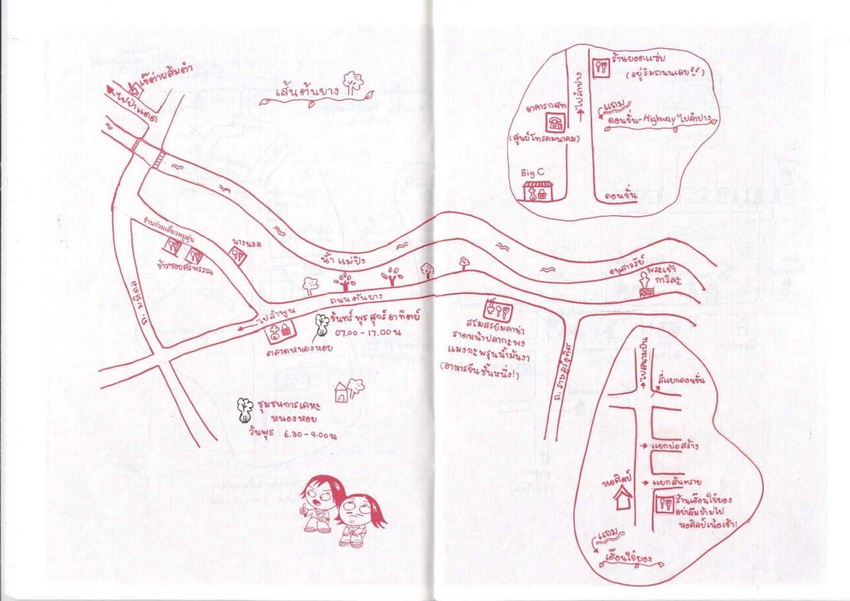 เส้นต้นยาง
เจ๊ต่ายส้มตำ
ไปป่าแดด
ร้านก๋วยเตี๋ยวหมูตุ๋น
ข้าวซอยสะพรรณ
นางนวล
น้ำแม่ปิง
ถนนต้นยาง
ไปลำพูน
ตลาดหนองหอย
จันทร์ พุธ ศุกร์ อาทิตย์
07.00 - 17.00 น
ชุมชนการเคหะ
หนองหอย
วันพุธ 6.30 - 9.00 น
ร้านยอดแซ่บ
(อยู่ริมถนนเลย!!)
ไปลำปาง
อาคาร กสท
(ศูนย์โทรคมนาคม)
แถม
ดอนจั่น - Highway ไปลำปาง
Big C
ดอนจั่น
อนุสาวรีย์
พระเจ้า
กาวิละ
ราดหน้าปลากะพง
แมงกะพรุนน้ำมันงา
(อาหารจีนชั้นหนึ่ง!)
ไปสนามบิน
สี่แยกดอนจั่น
แยกบ่อสร้าง
แยกสันทราย
หอศิลป์
ร้านเฮือนใจ๋ยอง
อย่าลืมข้ามไป
หอศิลป์เน้อเจ้า!
แถม
เฮือนใจ๋ยอง